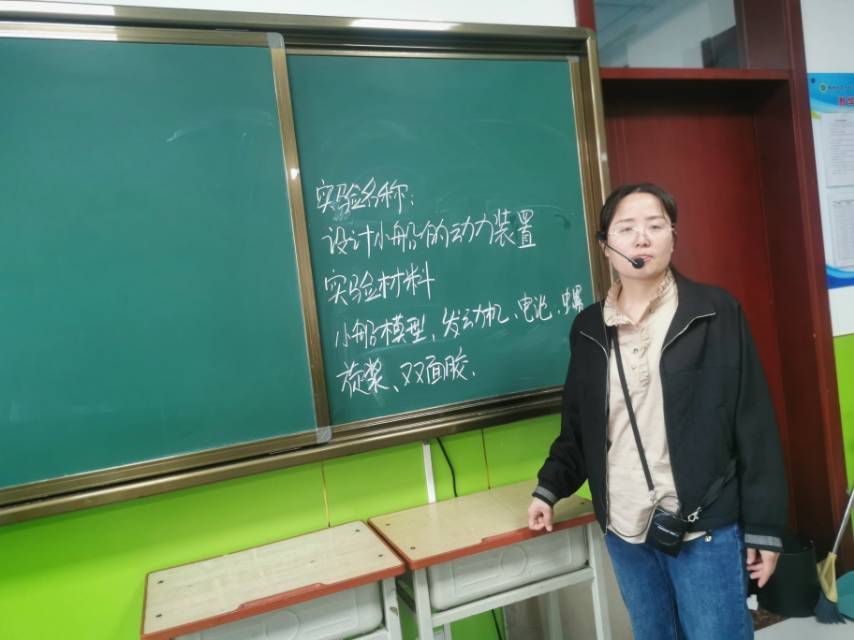 实验名称:
设计小船的动力装置
实验材料
小船模型、发动机、电池、螺
旋桨、双面胶.